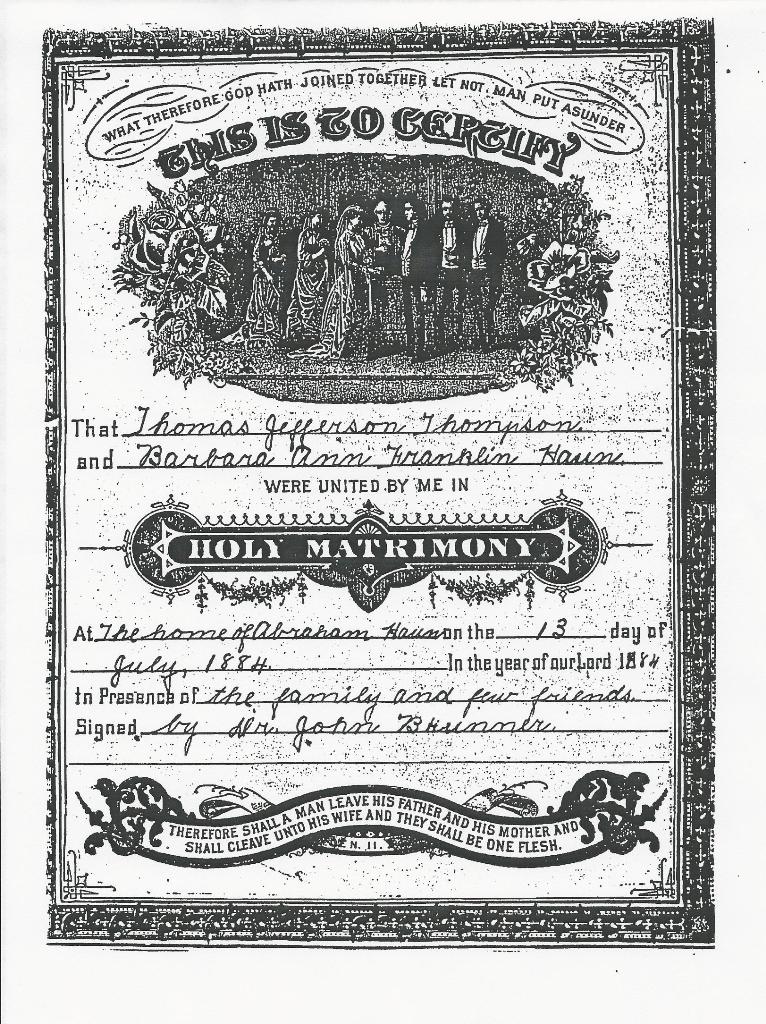 WHAT THEREFORE GOD HATH JOINED TOGETHER LET NOT MAN PUT ASUNDER
THIS IS TO CERTIFY
That Thomas Jefferson Thompson
and Barbara Ann Franklin Haun
WERE UNITED BY ME IN
HOLY MATRIMONY
At The home of Abraham Haun on the 13 day of
July, 1884. In the year of our Lord 1884
In Presence of the family and few friends.
Signed by Dr. John Brunner.
THEREFORE SHALL A MAN LEAVE HIS FATHER AND HIS MOTHER AND
SHALL CLEAVE UNTO HIS WIFE AND THEY SHALL BE ONE FLESH.
N. 11.